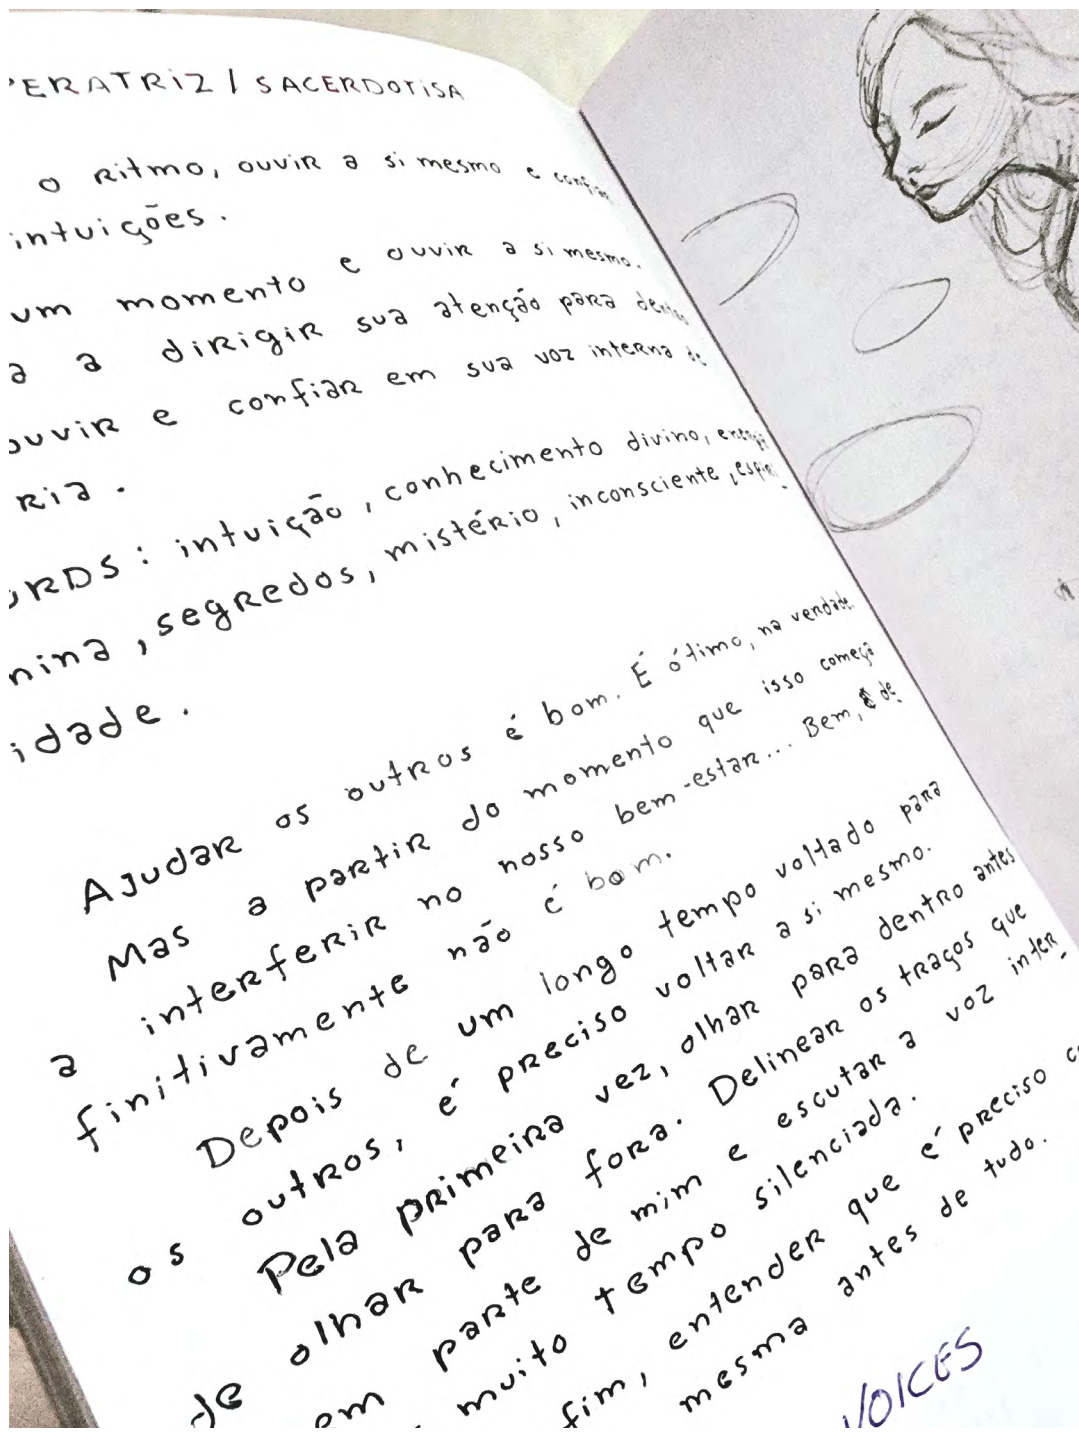 PERATRIZ / SACERDOTISA
o Ritmo, ouvir a si mesmo e confiar
intuições.
um momento e ouvir a si mesmo.
a a dirigir sua atenção para dentro
ouvir e confiar em sua voz interna de
Ria.
ORDS: intuição, conhecimento divino, energia
nina, segredos, mistério, inconsciente, espiri-
idade.
Ajudar os outros é bom. É ótimo, na verdade.
Mas a partir do momento que isso começa
a interferir no nosso bem-estar... Bem, de
finitivamente não é bom.
Depois de um longo tempo voltado para
os outros, é preciso voltar a si mesmo.
Pela primeira vez, olhar para dentro antes
de olhar para fora. Delinear os traços que
em parte de mim e escutar a voz inter-
muito tempo silenciada.
fim, entender que é preciso c
mesma antes de tudo.
VOICES